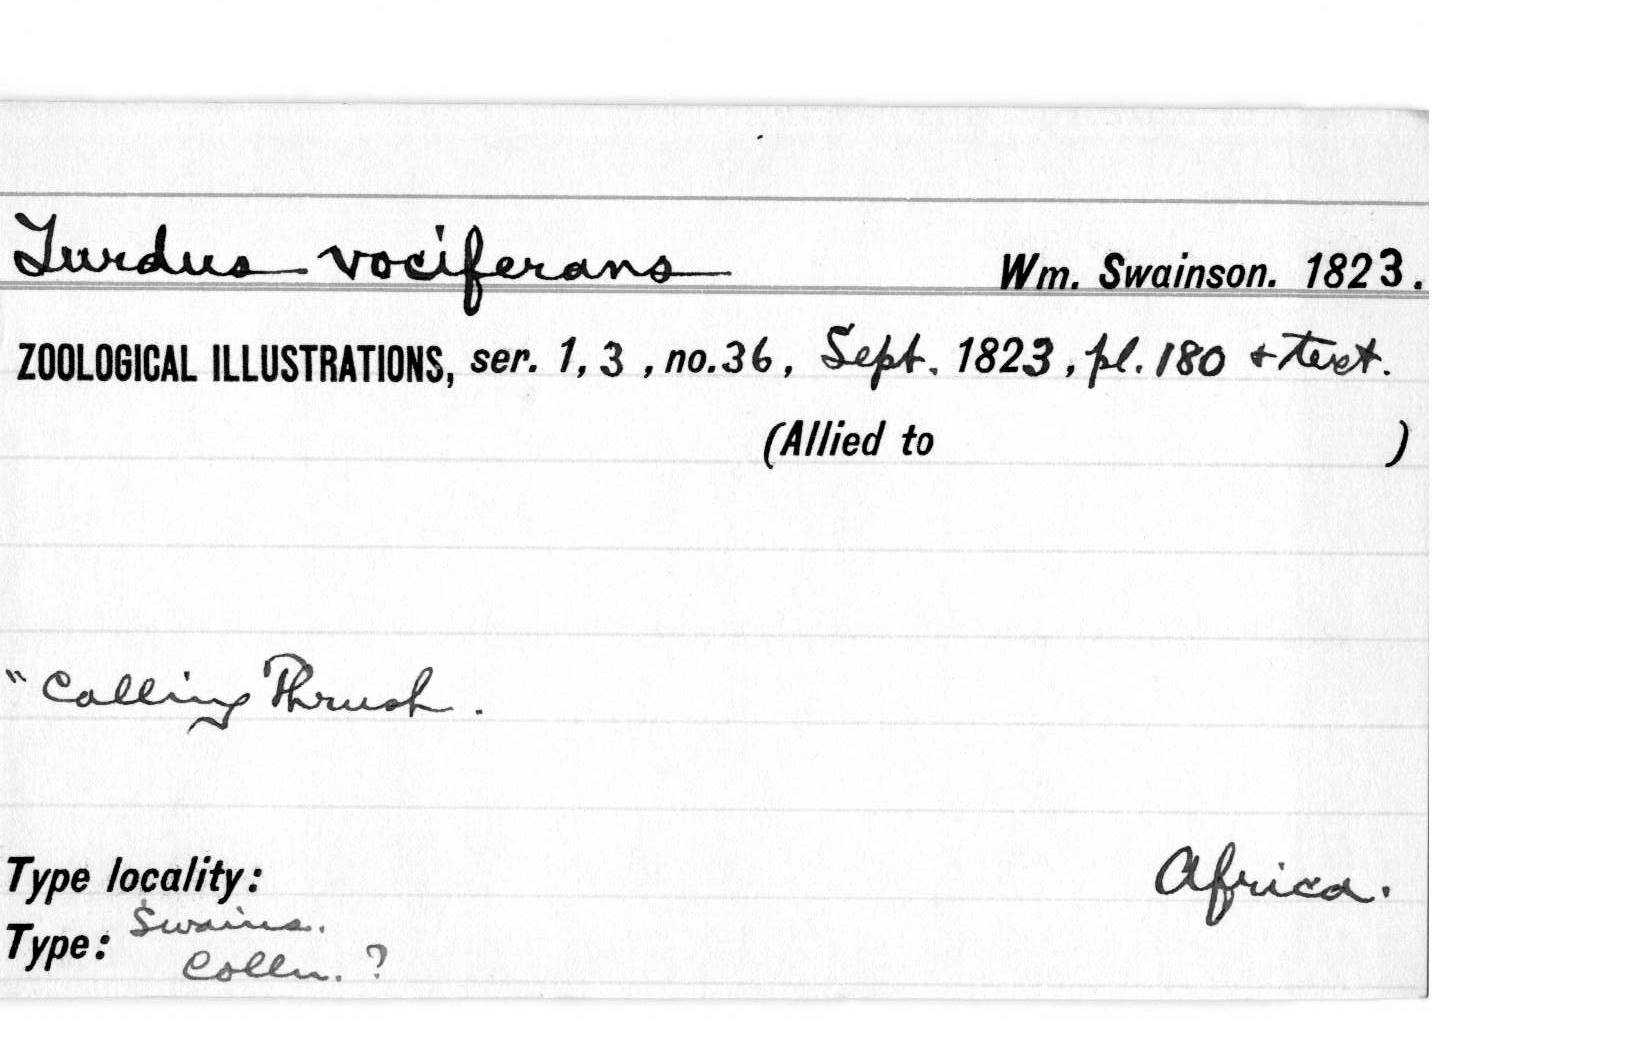 Turdus vociferans Wm. Swainson. 1823.
ZOOLOGICAL ILLUSTRATIONS, ser. 1, 3, no. 36, Sept. 1823, pl. 180 + text.
(Allied to )
"Calling Thrush.
Type locality: Africa.
Type: Swains.
Colln. ?